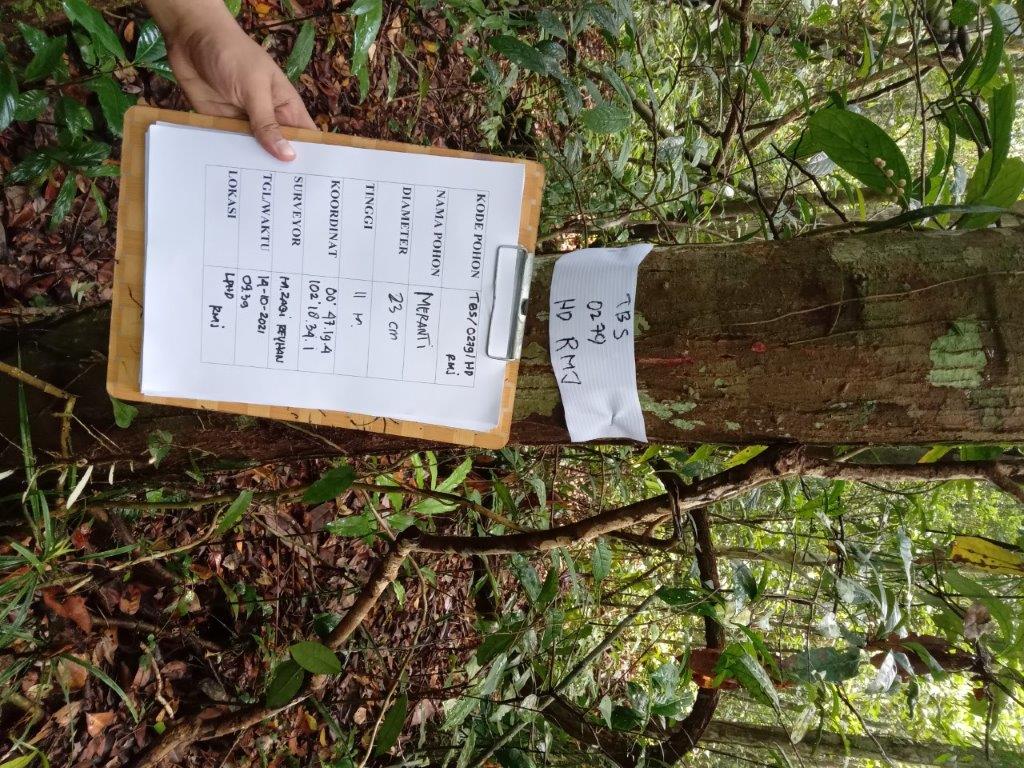 KODE POHON TBS/0279/HD
RMJ
NAMA POHON MERANTI
DIAMETER 23 cm
TINGGI 11 M.
KOORDINAT 00° 47.19.4
102° 18.34.1
SURVEYOR M.ZAQI REYHAN
TGL/WAKTU 14-10-2021
09.39
LOKASI LPHD
RMJ
TBS
0279
HD RMJ